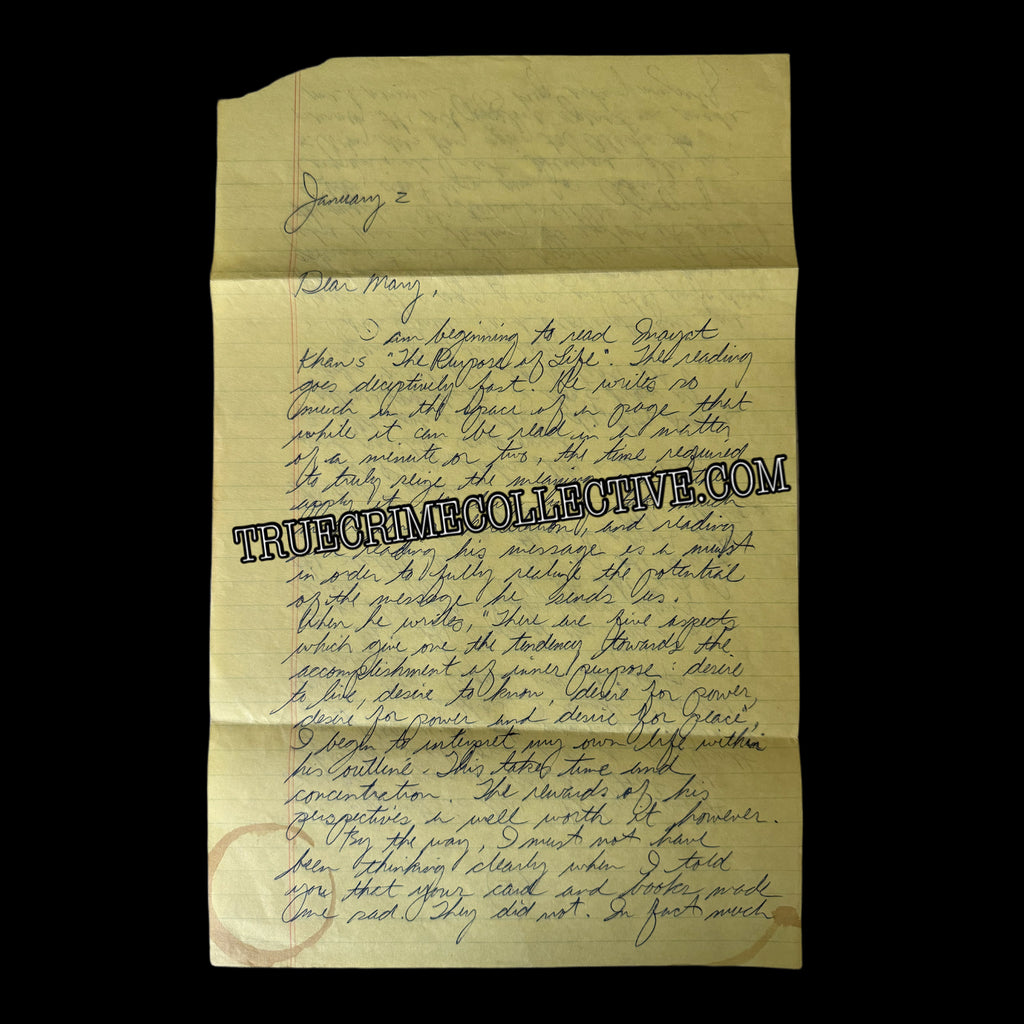 January 2
Dear Mary,
I am beginning to read Inayat
Khan's "The Purpose of Life". The reading
goes deceptively fast. He writes so
much in the space of a page that
while it can be read in a matter
of a minute or two, the time required
to truly seize the meaning
apply it
TRUECRIMECOLLECTIVE.COM
, and reading
reading his message is a must
in order to fully realize the potential
of the message he sends us.
When he writes, "There are five aspects
which give one the tendency towards the
accomplishment of inner purpose: desire
to live, desire to know, desire for power,
desire for power and desire for peace",
I begin to interpret my own life within
his outline. This takes time and
concentration. The rewards of his
perspectives is well worth it however.
By the way, I must not have
been thinking clearly when I told
you that your card and books made
me sad. They did not. In fact much